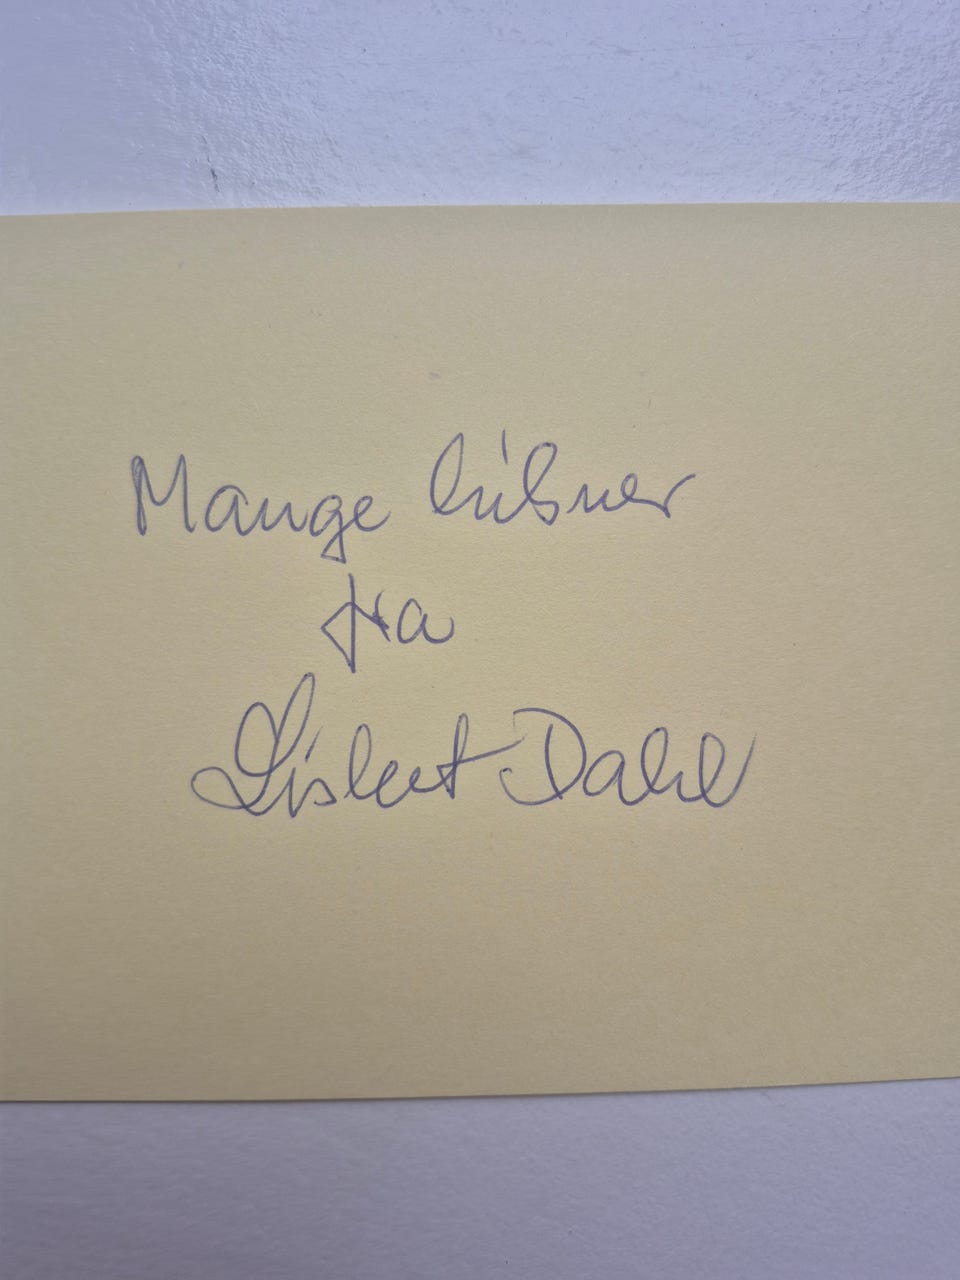 Mange hilsner
fra
Lisbet Dahl